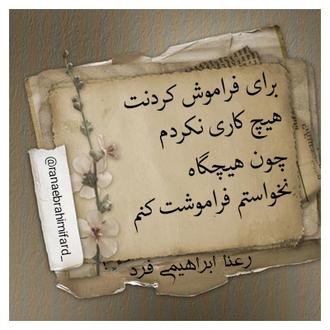 برای فراموش کردنت
هیچ کاری نکردم
چون هیچگاه
نخواستم فراموشت کنم
رعنا ابراهیمی فرد
@ranaebrahimifard_